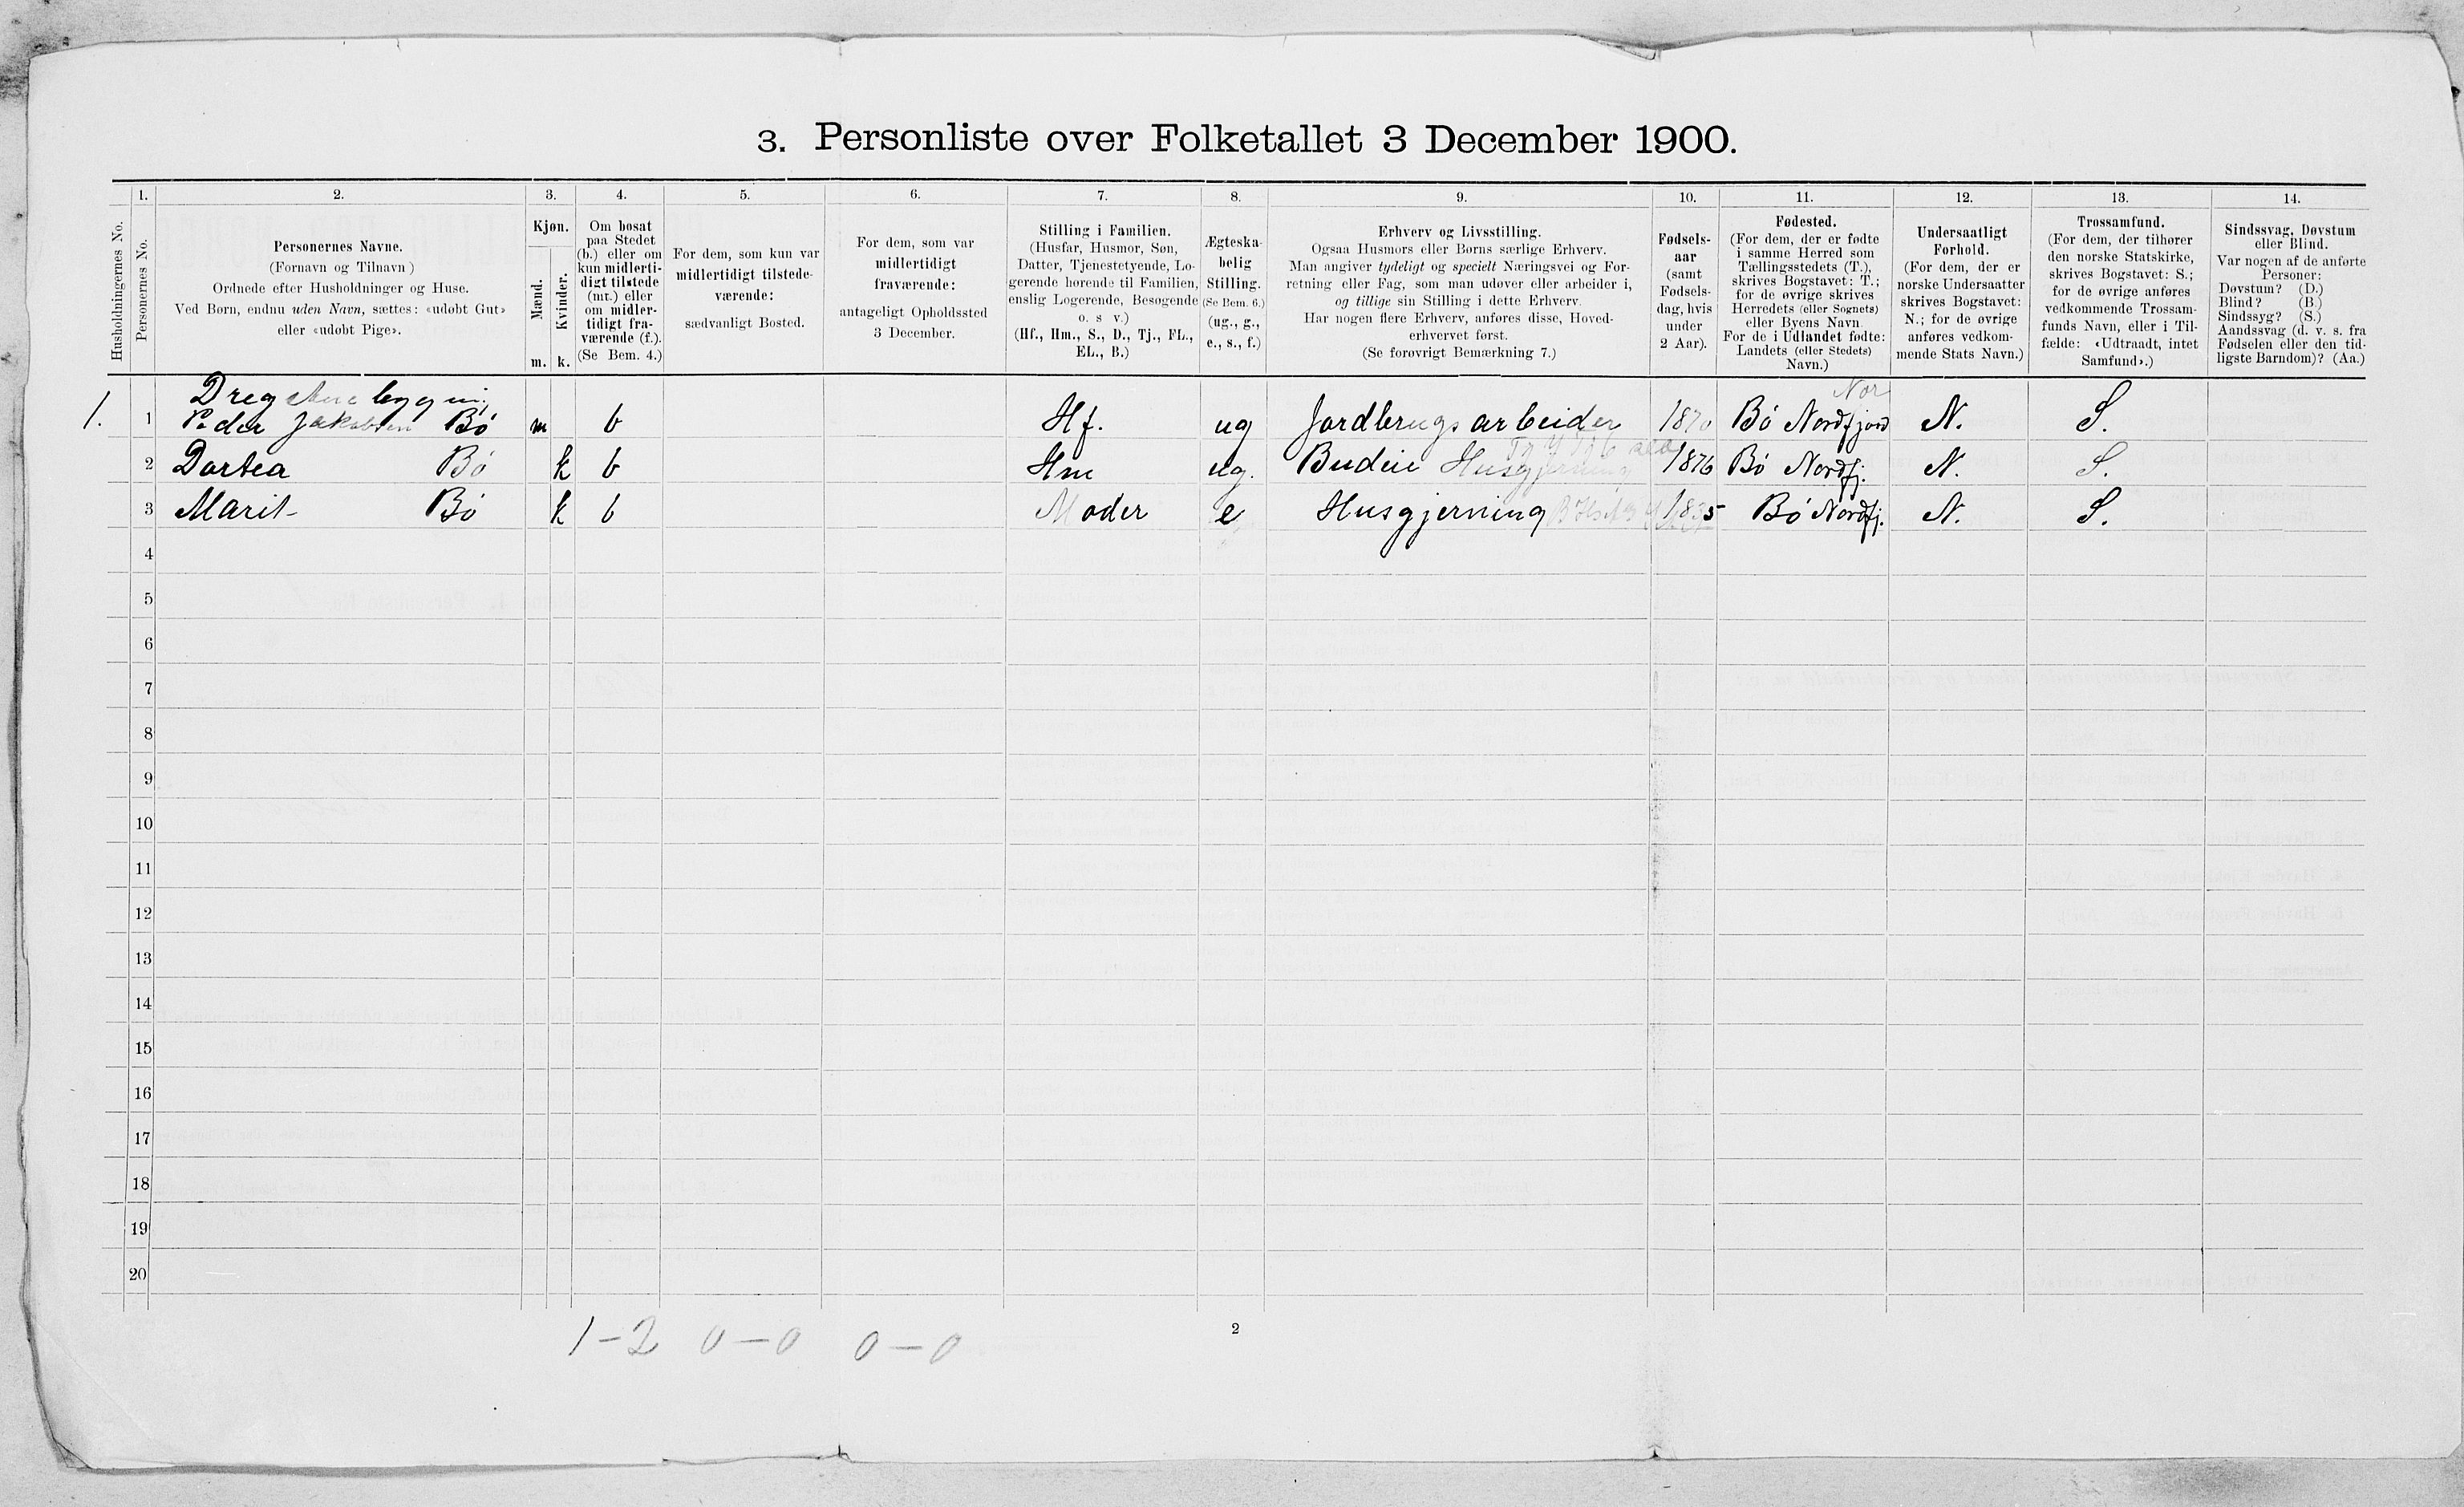 3. Personliste over Folketallet 3 December 1900.
1. 2. 3. 4. 5. 6. 7. 8. 9. 10. 11. 12. 13. 14.
Husholdningernes No.
Personernes No.
Personernes Navne.
(Fornavn og Tilnavn)
Ordnede efter Husholdninger og Huse.
Ved Børn, endnu uden Navn, sættes: «udøbt Gut»
eller «udøbt Pige».
Kjøn.
Mænd.
Kvinder.
m. k.
Om bosat
paa Stedet
(b.) eller om
kun midlerti-
digt tilstede
(mt.) eller
om midler-
tidigt fra-
værende (f.).
(Se Bem. 4.)
For dem, som kun var
midlertidigt tilstede-
værende:
sædvanligt Bosted.
For dem, som var
midlertidigt
fraværende:
antageligt Opholdssted
3 December.
Stilling i Familien.
(Husfar, Husmor, Søn,
Datter, Tjenestetyende, Lo-
gerende hørende til Familien,
enslig Logerende, Besøgende
o. s v.)
(Hf., Hm., S., D., Tj., FL.,
EL., B.)
Ægteska-
belig
Stilling.
(Se Bem. 6.)
(ug., g.,
e., s., f.)
Erhverv og Livsstilling.
Ogsaa Husmors eller Børns særlige Erhverv.
Man angiver tydeligt og specielt Næringsvei og For-
retning eller Fag, som man udøver eller arbeider i,
og tillige sin Stilling i dette Erhverv.
Har nogen flere Erhverv, anføres disse, Hoved-
erhvervet først.
(Se forøvrigt Bemærkning 7.)
Fødsels-
aar
(samt
Fødsels-
dag, hvis
under
2 Aar).
Fødested.
(For dem, der er fødte
i samme Herred som
Tællingsstedets (T.),
skrives Bogstavet: T.;
for de øvrige skrives
Herredets (eller Sognets)
eller Byens Navn.
For de i Udlandet fødte:
Landets (eller Stedets)
Navn.)
Undersaatligt
Forhold.
(For dem, der er
norske Undersaatter
skrives Bogstavet:
N.; for de øvrige
anføres vedkom-
mende Stats Navn.)
Trossamfund.
(For dem, der tilhører
den norske Statskirke,
skrives Bogstavet: S.;
for de øvrige anføres
vedkommende Trossam-
funds Navn, eller i Til-
fælde: «Udtraadt, intet
Samfund».)
Sindssvag, Døvstum
eller Blind.
Var nogen af de anførte
Personer:
Døvstum? (D.)
Blind? (B.)
Sindssyg? (S.)
Aandssvag (d. v. s. fra
Fødselen eller den tid-
ligste Barndom)? (Aa.)
Nor
1. 1 Peder Jakobsen Bö m b Hf. ug Jordbrugsarbeider 1870 Bö Nordfjord N. S.
2 Dortea Bö k b Hm ug. Budeie Husgjerning 1876 Bö Nordfj. N. S.
3 Marit Bö k b Moder e Husgjerning 1835 Bö Nordfj. N. S.
4
5
6
7
8
9
10
11
12
13
14
15
16
17
18
19
20
1-2 0-0 0-0
2